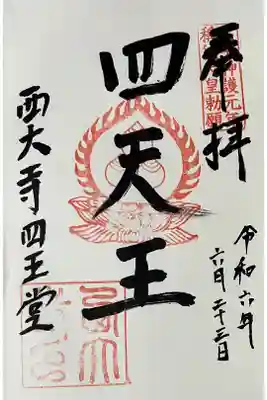 奉拝
神護元年
皇勅願
四天王
西大寺四王堂
令和六年
六月二十三日